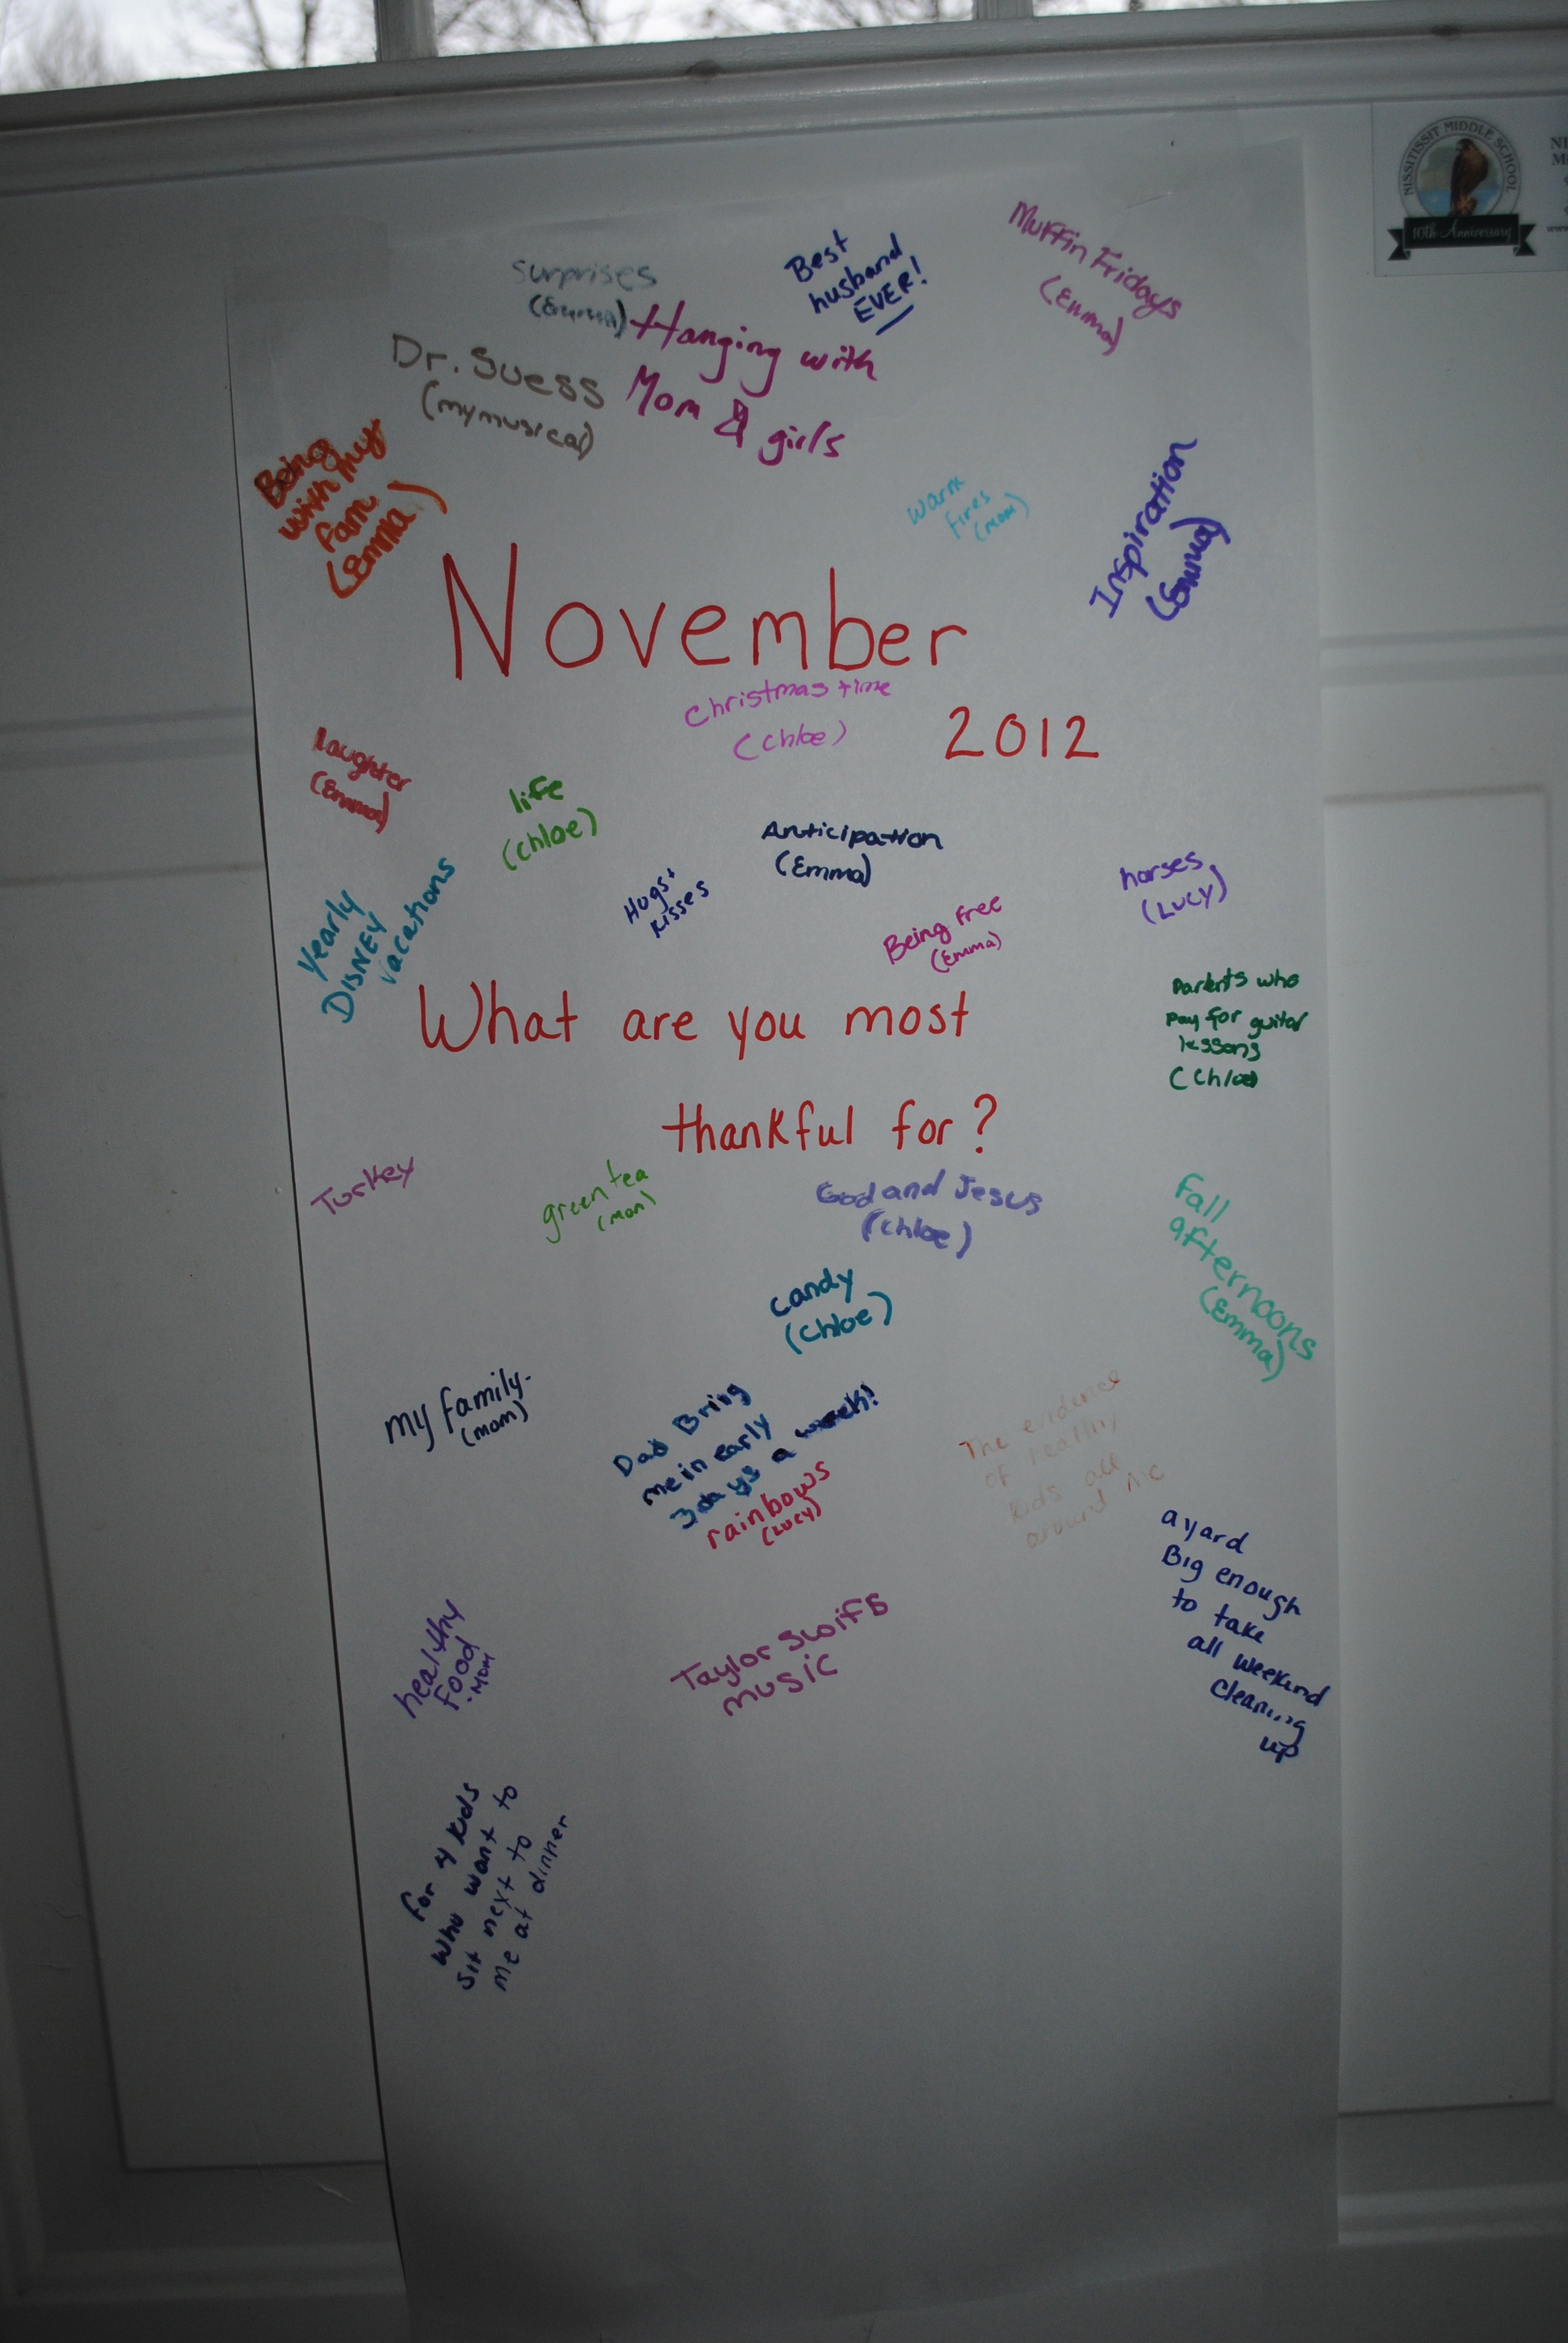 NISSITISSIT MIDDLE SCHOOL
10th Anniversary
surprises
(Emma)
Best
husband
EVER!
Muffin Fridays
(Emma)
Hanging with
Mom & girls
Dr. Suess
(my musical)
Being
with my
fam
(Emma)
warm
fires
(mom)
Inspiration
(Emma)
November
2012
Christmas time
(Chloe)
laughter
(Emma)
life
(Chloe)
Anticipation
(Emma)
horses
(Lucy)
Yearly
DISNEY
vacations
Hugs +
kisses
Being free
(Emma)
Parents who
pay for guitar
lessons
(Chloe)
What are you most
thankful for?
Turkey
green tea
(mom)
God and Jesus
(Chloe)
Fall
afternoons
(Emma)
candy
(Chloe)
my family-
(mom)
Dad Bring
me in early
3 days a week!
rainbows
(Lucy)
The evidence
of healthy
kids all
around me
a yard
Big enough
to take
all weekend
cleaning
up
healthy
Food
-Mom
Taylor Swifs
music
For 4 kids
who want to
sit next to
me at dinner